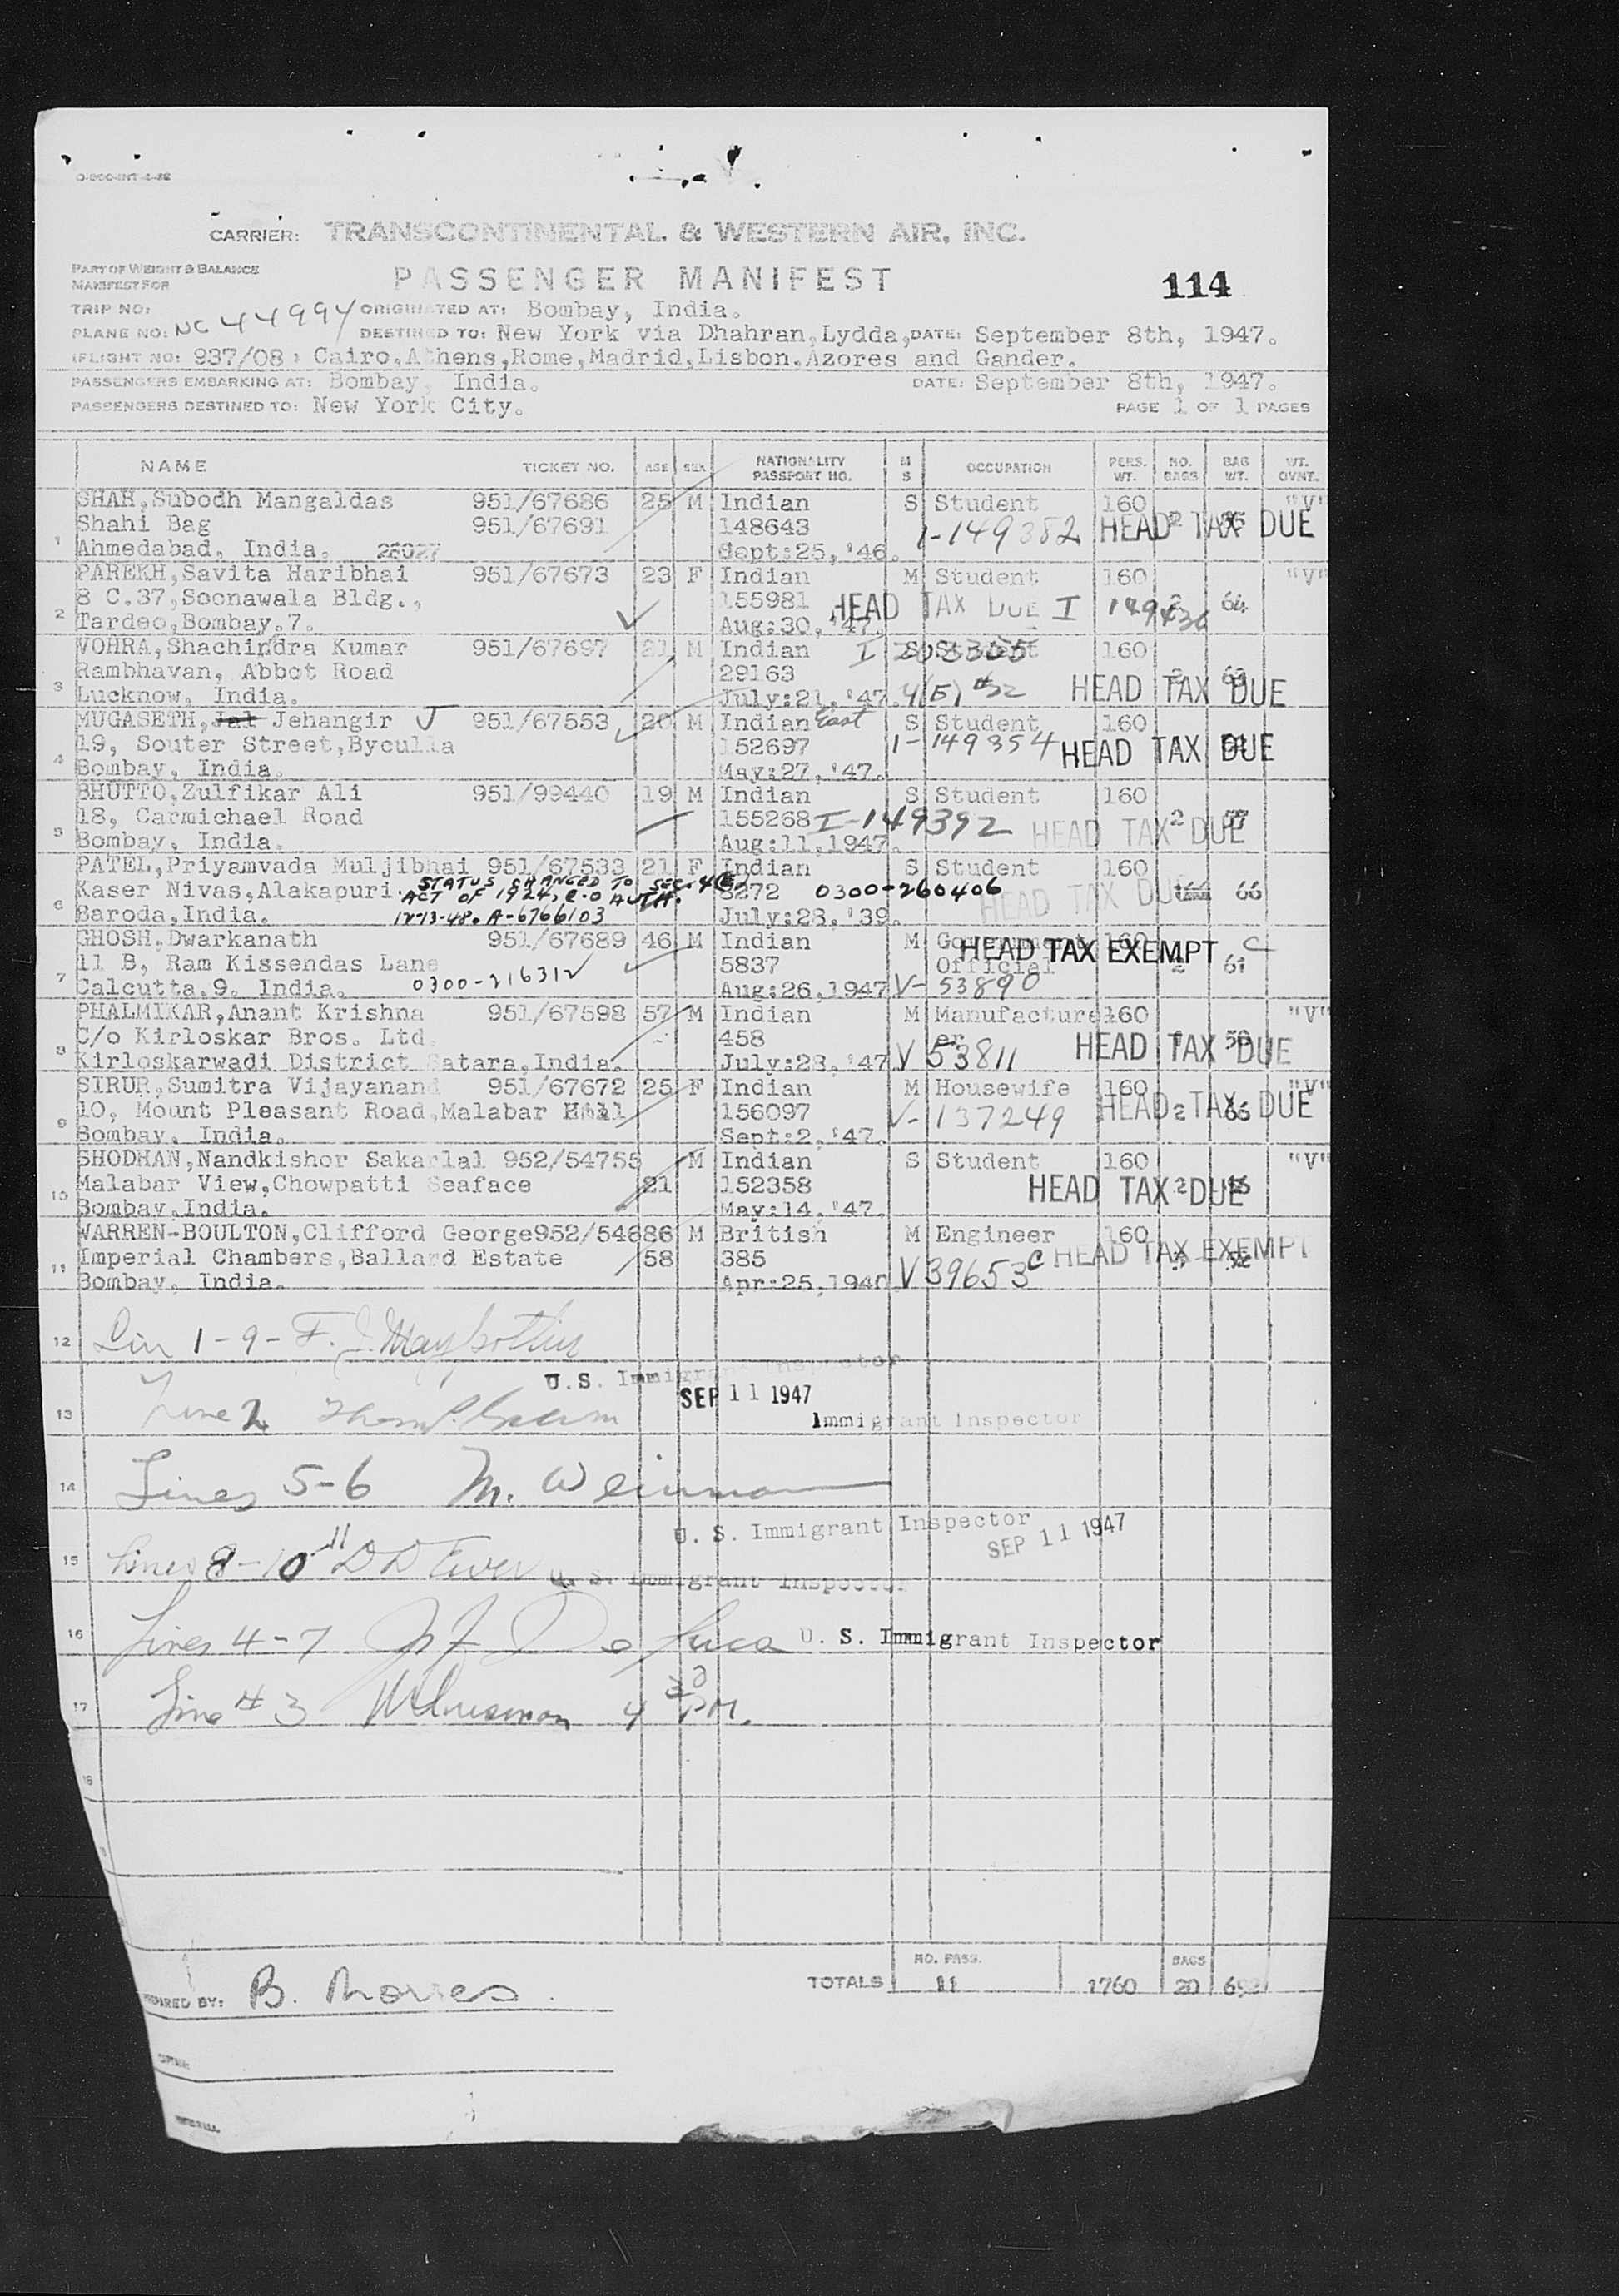 O-200-INT-4-46
CARRIER: TRANSCONTINENTAL & WESTERN AIR, INC.
PART OF WEIGHT & BALANCE
MANIFEST FOR
PASSENGER MANIFEST
114
TRIP NO: ORIGINATED AT: Bombay, India.
PLANE NO: NC 44994 DESTINED TO: New York via Dhahran,Lydda, DATE: September 8th, 1947.
(FLIGHT NO: 937/08) Cairo,Athens,Rome,Madrid,Lisbon.Azores and Gander.
PASSENGERS EMBARKING AT: Bombay, India. DATE: September 8th, 1947.
PASSENGERS DESTINED TO: New York City. PAGE 1 OF 1 PAGES
NAME TICKET NO. AGE SEX NATIONALITY PASSPORT NO. M S OCCUPATION PERS. WT. NO. BAGS BAG WT. WT. OVNT.
SHAH,Subodh Mangaldas 951/67686 25 M Indian S Student 160 "V"
Shahi Bag 951/67691 148643 1-149382 HEAD TAX DUE
1 Ahmedabad, India. 26027 Sept:25,'46.
PAREKH,Savita Haribhai 951/67673 23 F Indian M Student 160 "V"
8 C.37,Soonawala Bldg., 155981 HEAD TAX DUE I 149436 64
2 Tardeo,Bombay.7. Aug:30,'47.
VOHRA,Shachindra Kumar 951/67697 21 M Indian S Student 160
Rambhavan, Abbot Road 29163
3 Lucknow, India. July:21,'47. 4(E) #32 HEAD TAX DUE
MUGASETH,Jal Jehangir J 951/67553 20 M Indian East S Student 160
19, Souter Street,Byculla 152697 1-149354 HEAD TAX DUE
4 Bombay, India. May:27,'47.
BHUTTO,Zulfikar Ali 951/99440 19 M Indian S Student 160
18, Carmichael Road 155268 I-149392 HEAD TAX DUE 2
5 Bombay, India. Aug:11,1947.
PATEL,Priyamvada Muljibhai 951/67533 21 F Indian S Student 160
Kaser Nivas,Alakapuri. STATUS CHANGED TO SEC. 4(E) 3272 0300-260406 HEAD TAX DUE 66
ACT OF 1924, C.O AUTH.
6 Baroda,India. 12-13-48. A-6766103 July:28,'39.
GHOSH,Dwarkanath 951/67689 46 M Indian M Government 160 HEAD TAX EXEMPT C
11 B, Ram Kissendas Lane 5837 Official 61
7 Calcutta.9. India. 0300-216312 Aug:26,1947 V-53890
PHALMIKAR,Anant Krishna 951/67598 57 M Indian M Manufacturer 160 "V"
C/o Kirloskar Bros. Ltd. 458 er HEAD TAX DUE
8 Kirloskarwadi District Satara,India. July:28,'47 V 53811
SIRUR,Sumitra Vijayanand 951/67672 25 F Indian M Housewife 160 "V"
10, Mount Pleasant Road,Malabar Hill 156097 V-137249 HEAD TAX DUE 2 66
9 Bombay, India. Sept:2,'47.
SHODHAN,Nandkishor Sakarlal 952/54755 M Indian S Student 160 "V"
Malabar View,Chowpatti Seaface 21 152358 HEAD TAX DUE 2
10 Bombay,India. May:14,'47.
WARREN-BOULTON,Clifford George 952/54686 M British M Engineer 160
Imperial Chambers,Ballard Estate 58 385 V 39653 C HEAD TAX EXEMPT
11 Bombay, India. Apr:25,1940
12 Lin 1-9- F. J.
U.S. Immigrant Inspector
SEP 11 1947
13 Line 2 Immigrant Inspector
14 Lines 5-6 M. Weinman
U. S. Immigrant Inspector
SEP 11 1947
15 Lines 8-10-11 U. S. Immigrant Inspector
16 Lines 4-7 De Luca U. S. Immigrant Inspector
17 Line #3 4 30 PM.
18
NO. PASS. BAGS
TOTALS 11 1760 20
PREPARED BY: B.
CAPTAIN: